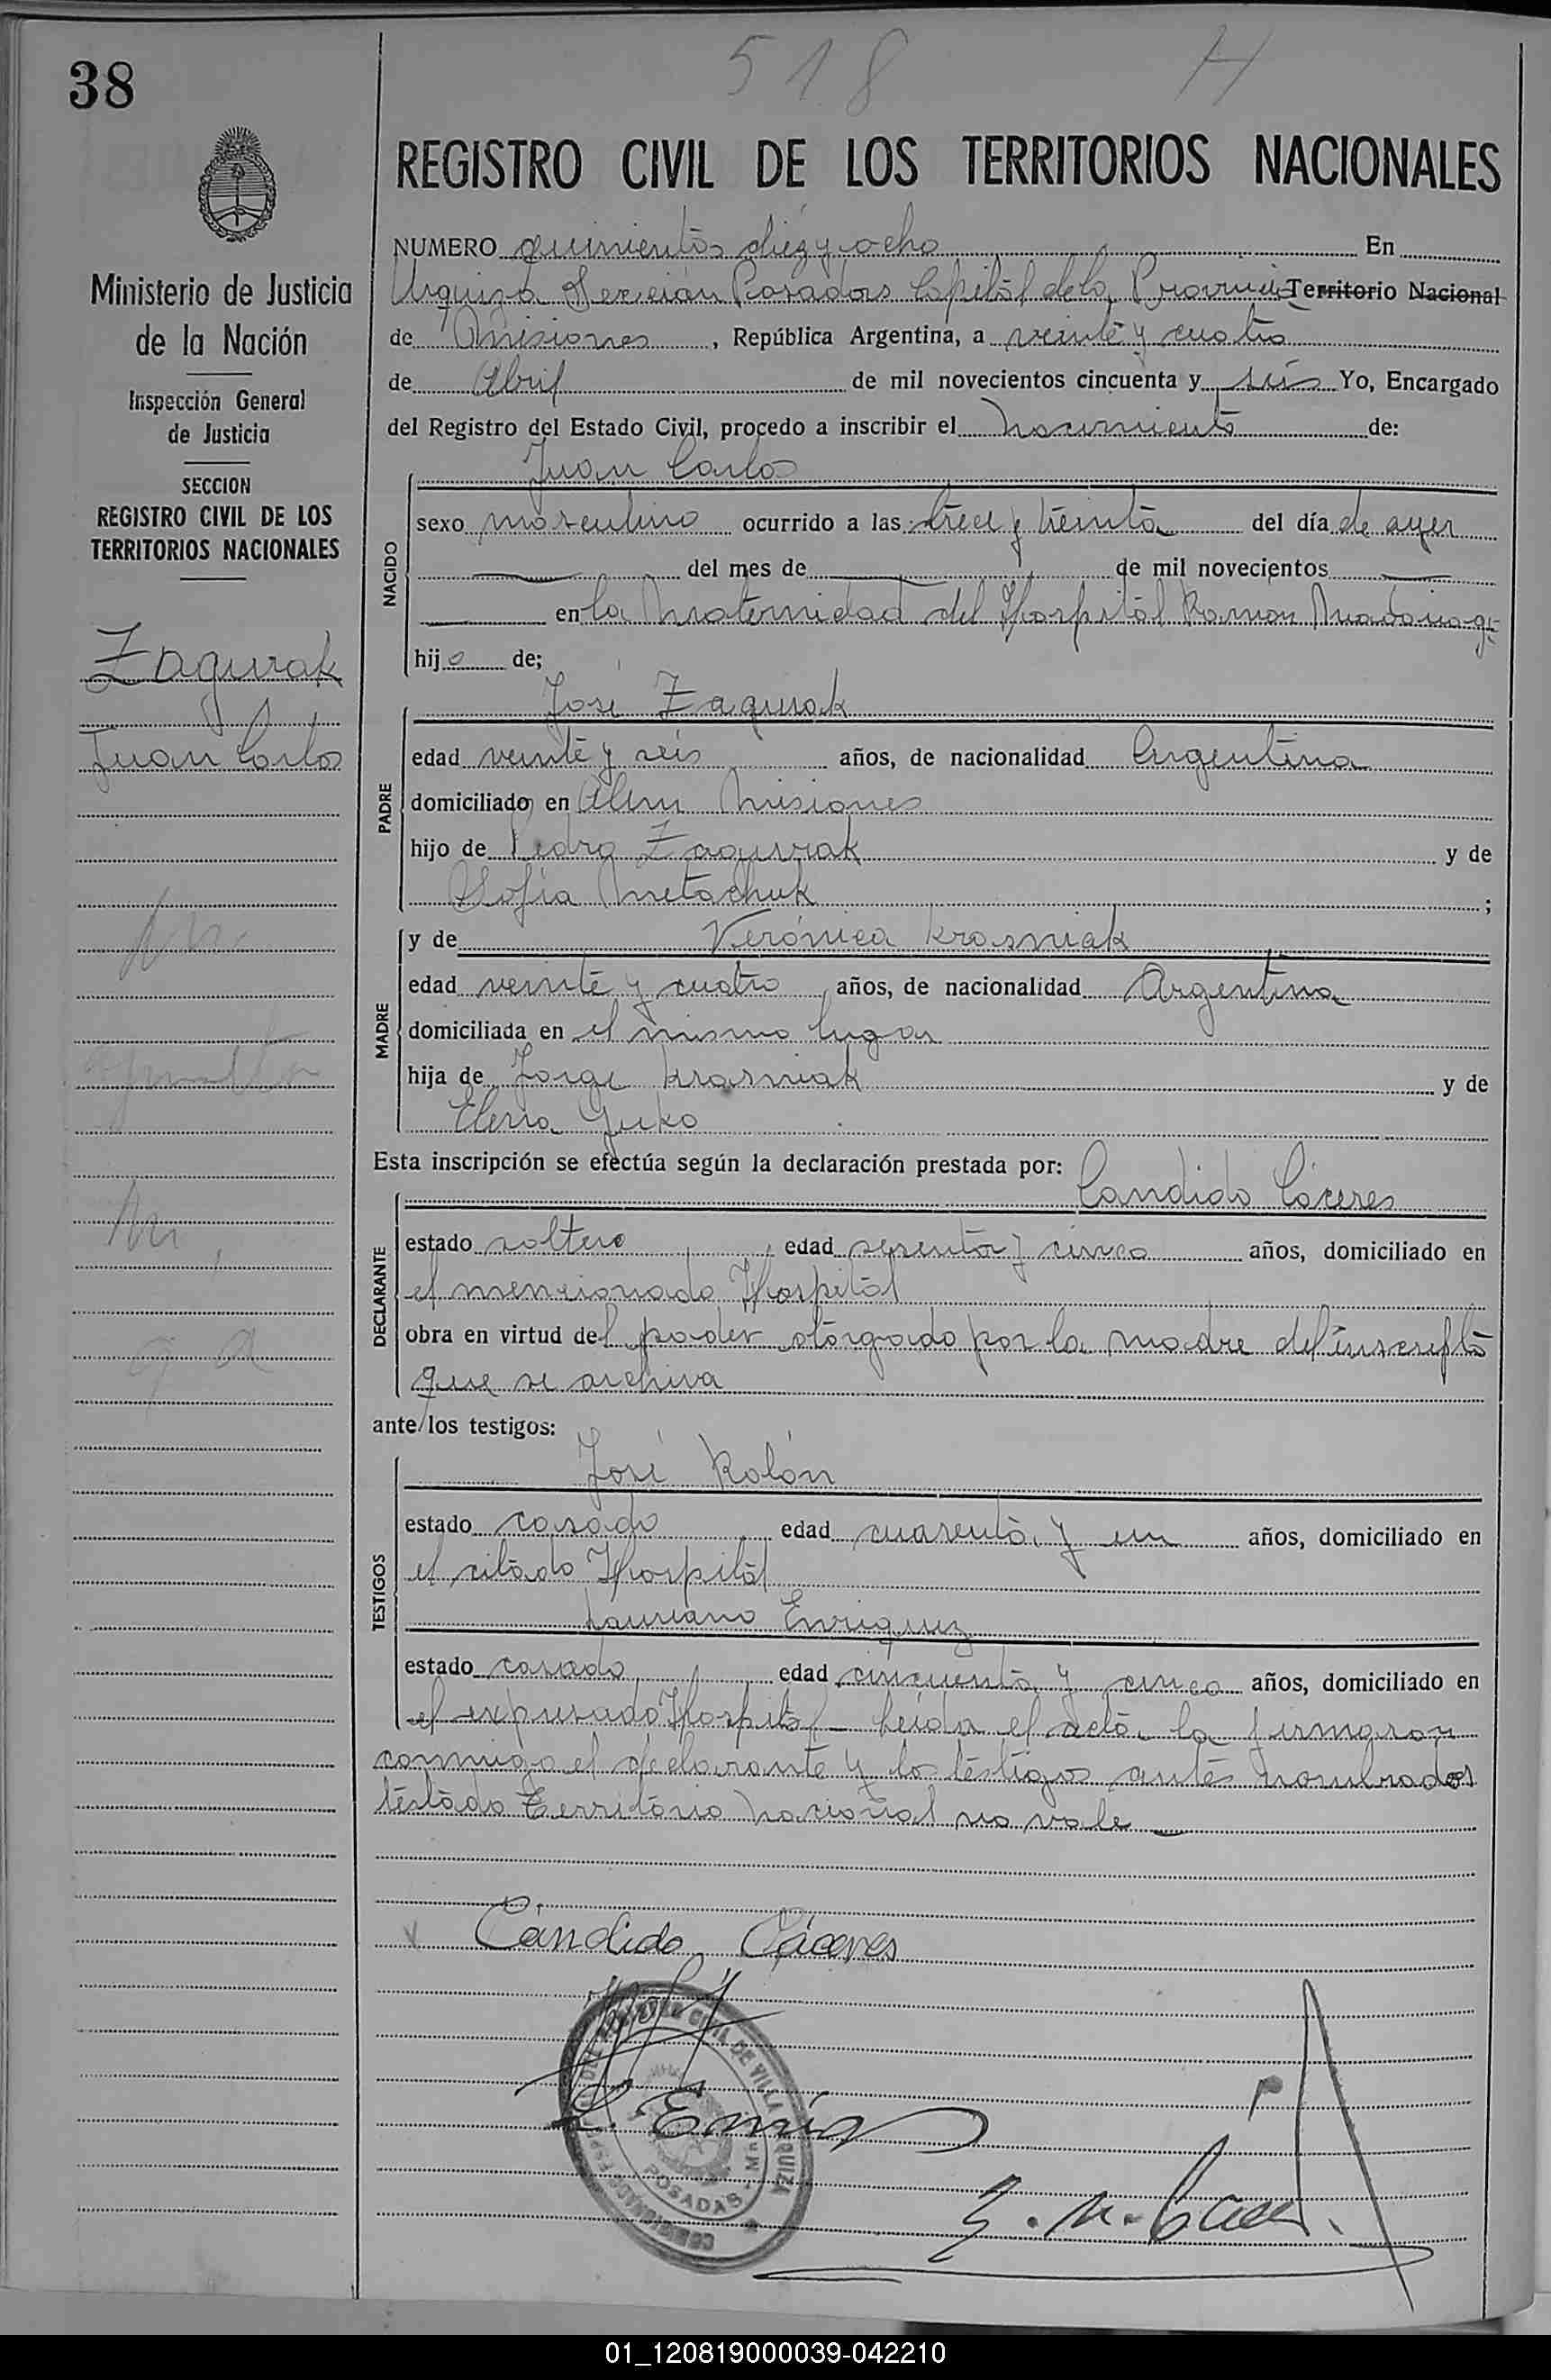 518 H
38
REGISTRO CIVIL DE LOS TERRITORIOS NACIONALES
Ministerio de Justicia
de la Nación
Inspección General
de Justicia
SECCION
REGISTRO CIVIL DE LOS
TERRITORIOS NACIONALES
Zagurak
Juan Carlos
NUMERO quinientos diez y ocho En
Urquiza Sección Posadas Capital de la Provincia Territorio Nacional
de Misiones, República Argentina, a veinte y cuatro
de Abril de mil novecientos cincuenta y seis Yo, Encargado
del Registro del Estado Civil, procedo a inscribir el nacimiento de:
Juan Carlos
NACIDO
sexo masculino ocurrido a las trece y treinta del día de ayer
del mes de de mil novecientos
en la Maternidad del Hospital Ramon Madariaga
hijo de;
José Zagurak
PADRE
edad veinte y seis años, de nacionalidad Argentina
domiciliado en Alem Misiones
hijo de Pedro Zagurak y de
Sofia Metachuk;
MADRE
y de Verónica Krasniak
edad veinte y cuatro años, de nacionalidad Argentina
domiciliada en el mismo lugar
hija de Jorge Krasniak y de
Elena Yuko
Esta inscripción se efectúa según la declaración prestada por:
Candido Cáceres
DECLARANTE
estado soltero edad sesenta y cinco años, domiciliado en
el mencionado Hospital
obra en virtud del poder otorgado por la madre del inscripto
que se archiva
ante los testigos:
José Rolón
TESTIGOS
estado casado edad cuarenta y un años, domiciliado en
el citado Hospital
Lauriano Enriquez
estado casado edad cincuenta y cinco años, domiciliado en
el expresado Hospital – Leida el acta la firmaron
conmigo el declarante y los testigos antes nombrados
testado Territorio Nacional no vale
Cándido Cáceres
POSADAS
01_120819000039-042210